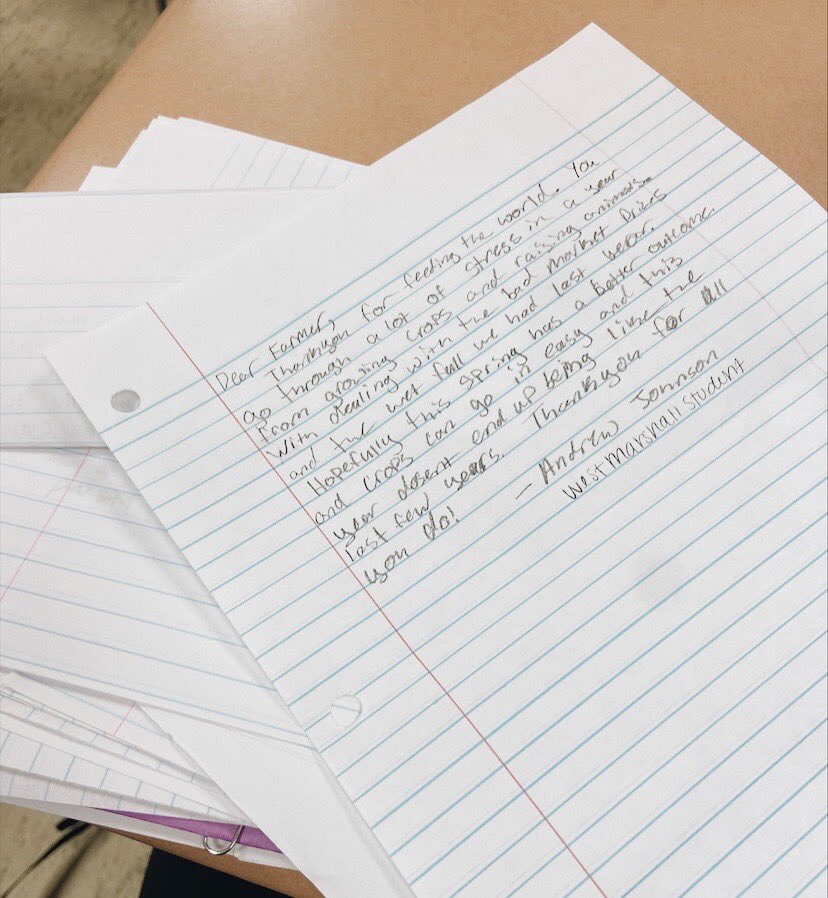 Dear Farmer,
Thankyou for feeding the world. You
go through a lot of stress in a year
From growing crops and raising animals.
With dealing with the bad market prizes
and the wet fall we had last year.
Hopefully this spring has a better outcome.
and crops can go in easy and this
year dosent end up being like the
last few years. Thankyou for all
you do!
- Andrew Johnson
West Marshall student